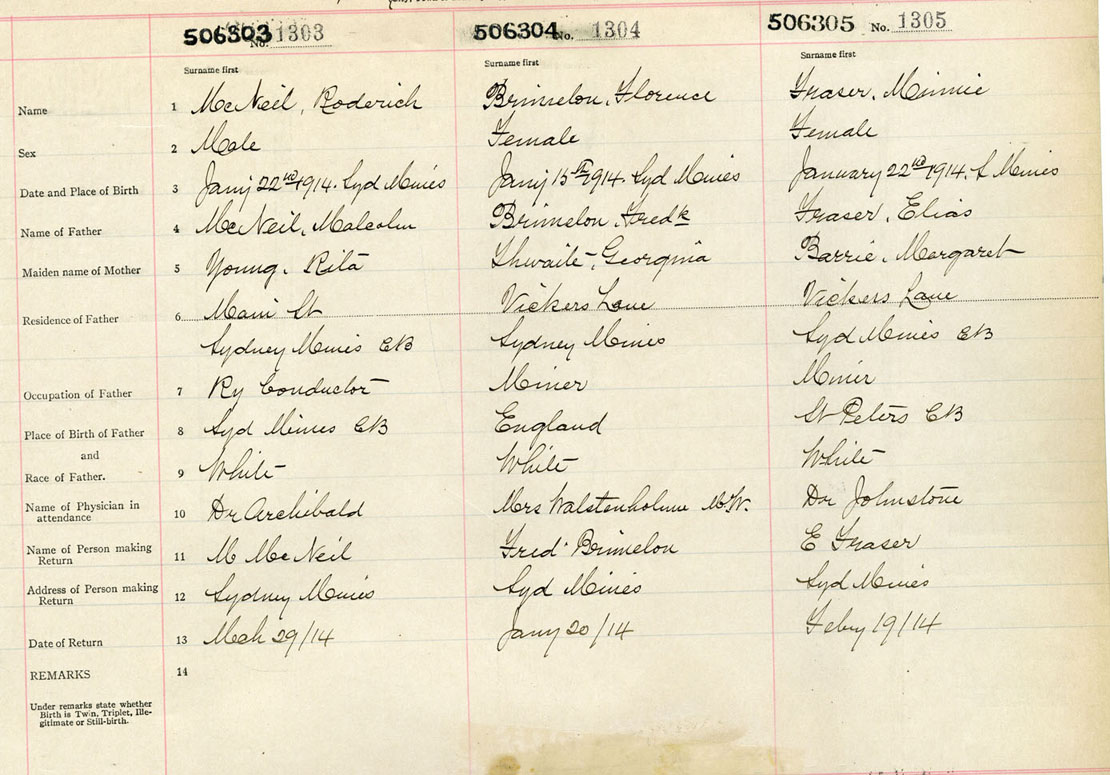 506303 No. 1303 506304 No. 1304 506305 No. 1305
Surname first Surname first Surname first
Name 1 McNeil, Roderich Brimelon, Florence Fraser, Minnie
Sex 2 Male Female Female
Date and Place of Birth 3 Jany 22nd 1914. Syd Mines Jany 15th 1914. Syd Mines January 22nd 1914. S Mines
Name of Father 4 McNeil, Malcolm Brimelon, Fredk Fraser, Elias
Maiden name of Mother 5 Young, Rita Thwaite, Georginia Barrie, Margaret
Residence of Father 6 Main St Vickers Lane Vickers Lane
Sydney Mines CB Sydney Mines Syd Mines CB
Occupation of Father 7 Ry Conductor Miner Miner
Place of Birth of Father 8 Syd Mines CB England St Peters CB
and
Race of Father. 9 White White White
Name of Physician in
attendance 10 Dr Archibald Mrs Walstenholme M.W. Dr Johnstone
Name of Person making
Return 11 M McNeil Fred Brimelon E Fraser
Address of Person making
Return 12 Sydney Mines Syd Mines Syd Mines
Date of Return 13 Mch 29/14 Jany 20/14 Feby 19/14
REMARKS 14
Under remarks state whether
Birth is Twin, Triplet, Ille-
gitimate or Still-birth.